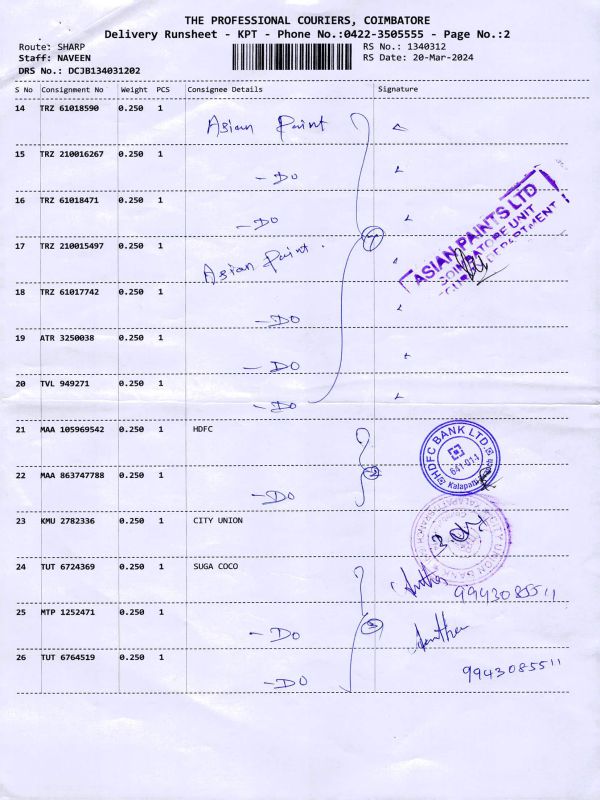 THE PROFESSIONAL COURIERS, COIMBATORE
Delivery Runsheet - KPT - Phone No.:0422-3505555 - Page No.:2
Route: SHARP RS No.: 1340312
Staff: NAVEEN RS Date: 20-Mar-2024
DRS No.: DCJB134031202
S No Consignment No Weight PCS Consignee Details Signature
14 TRZ 61018590 0.250 1 Asian Paint
15 TRZ 210016267 0.250 1 - DO
16 TRZ 61018471 0.250 1 - DO
17 TRZ 210015497 0.250 1 Asian Paint. 7
ASIAN PAINTS LTD
COIMBATORE UNIT
18 TRZ 61017742 0.250 1 - DO
19 ATR 3250038 0.250 1 - DO
20 TVL 949271 0.250 1 - DO
21 MAA 105969542 0.250 1 HDFC
HDFC BANK LTD.
641-014
22 MAA 863747788 0.250 1 - DO 2
23 KMU 2782336 0.250 1 CITY UNION
CITY UNION BANK
24 TUT 6724369 0.250 1 SUGA COCO
9943085511
25 MTP 1252471 0.250 1 - DO 3
26 TUT 6764519 0.250 1 - DO 9943085511